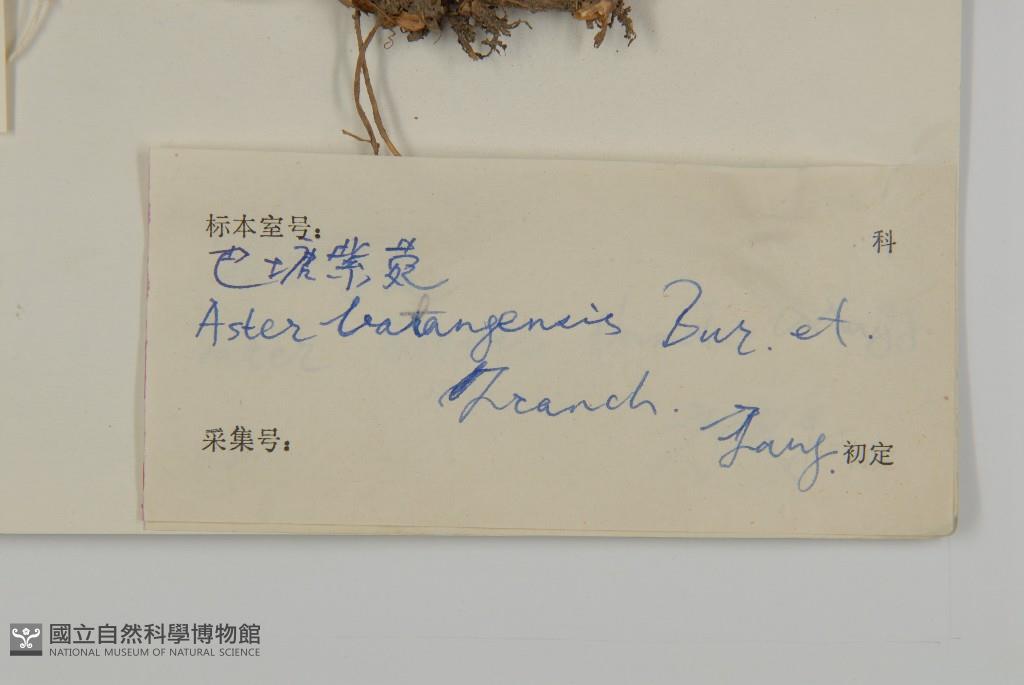 标本室号：
科
巴塘紫菀
Aster batangensis Bur. et.
Franch.
Fang.
采集号：
初定
國立自然科學博物館
NATIONAL MUSEUM OF NATURAL SCIENCE